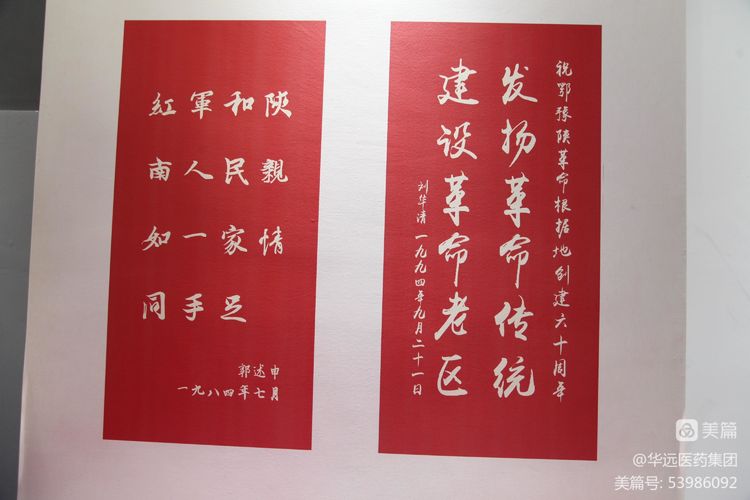 紅軍和陝
南人民親
如一家情
同手足
郭述申
一九八四年七月
祝鄂豫陕革命根据地创建六十周年
发扬革命传统
建设革命老区
刘华清一九九四年九月二十一日
美篇
@华远医药集团
美篇号: 53986092